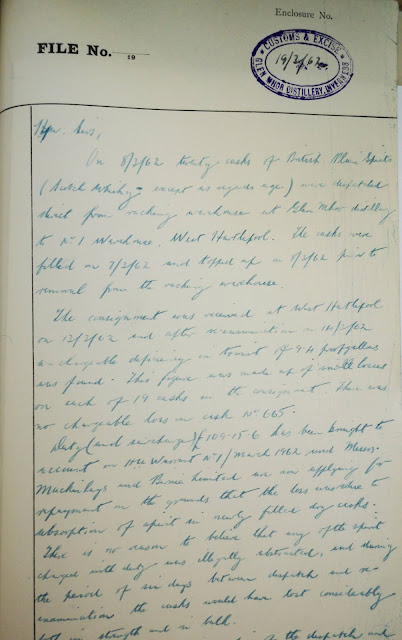 Enclosure No.
FILE No.
19
CUSTOMS & EXCISE
19/2/62
GLEN MHOR DISTILLERY, INVERNESS
Hon. Sirs,
On 8/2/62 twenty casks of British Plain Spirits
(Scotch Whisky except as regards age) were despatched
direct from racking warehouse at Glen Mhor distillery
to No 1 Warehouse, West Hartlepool. The casks were
filled on 7/2/62 and topped up on 8/2/62 prior to
removal from the racking warehouse.
The consignment was received at West Hartlepool
on 12/2/62 and after re-examination on 14/2/62
a chargeable deficiency in transit of 9.4 proof gallons
was found. This figure was made up of small losses
on each of 19 casks in the consignment. There was
no chargeable loss in cask No 665.
Duty (and surcharge) £109-15-6 has been brought to
account on Warrant No 1/March 1962 and Messrs
Mackinlays and Birnie Limited are now applying for
repayment on the grounds that the loss was due to
absorption of spirit in newly filled dry casks.
There is no reason to believe that any of the spirit
charged with duty was illegally abstracted, and during
the period of six days between despatch and re-
examination the casks would have lost considerably
both in strength and in bulk.
of the despatch and